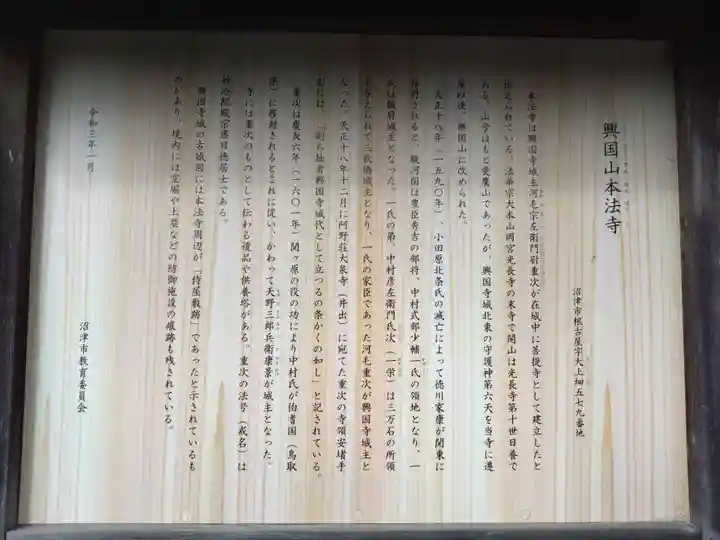 興国山本法寺
沼津市根古屋字大上畑五七九番地
本法寺は興国寺城主河毛宗左衛門尉重次が在城中に菩提寺として建立したと
伝えられている。法華宗大本山岡宮光長寺の末寺で開山は光長寺第十世日養で
ある。山号はもと愛鷹山であったが、興国寺城北東の守護神第六天を当寺に遷
座以後、興国山に改められた。
天正十八年（一五九〇年）、小田原北条氏の滅亡によって徳川家康が関東に
移封されると、駿河国は豊臣秀吉の部将、中村式部少輔一氏の領地となり、一
氏は駿府城主となった。一氏の弟、中村彦左衛門氏次（一栄）は三万石の所領
を与えられて三枚橋城主となり、一氏の家臣であった河毛重次が興国寺城主と
なった。天正十八年十二月に阿野荘大泉寺（井出）に宛てた重次の寺領安堵手
形には、「明ら拙者興国寺城代として立つるの条かくの如し」と記されている。
重次は慶長六年（一六〇一年）関ヶ原の役の功により中村氏が伯耆国（鳥取
県）に移封されるとこれに従い、かわって天野三郎兵衛康景が城主となった。
寺には重次のものとして伝わる遺品や供養塔がある。重次の法号（戒名）は
妙冷院殿宗恵日徳居士である。
興国寺城の古城図には本法寺周辺が「侍屋敷跡」であったと示されているも
のがあり、境内には空堀や土塁などの防御施設の痕跡も残されている。
令和三年一月
沼津市教育委員会